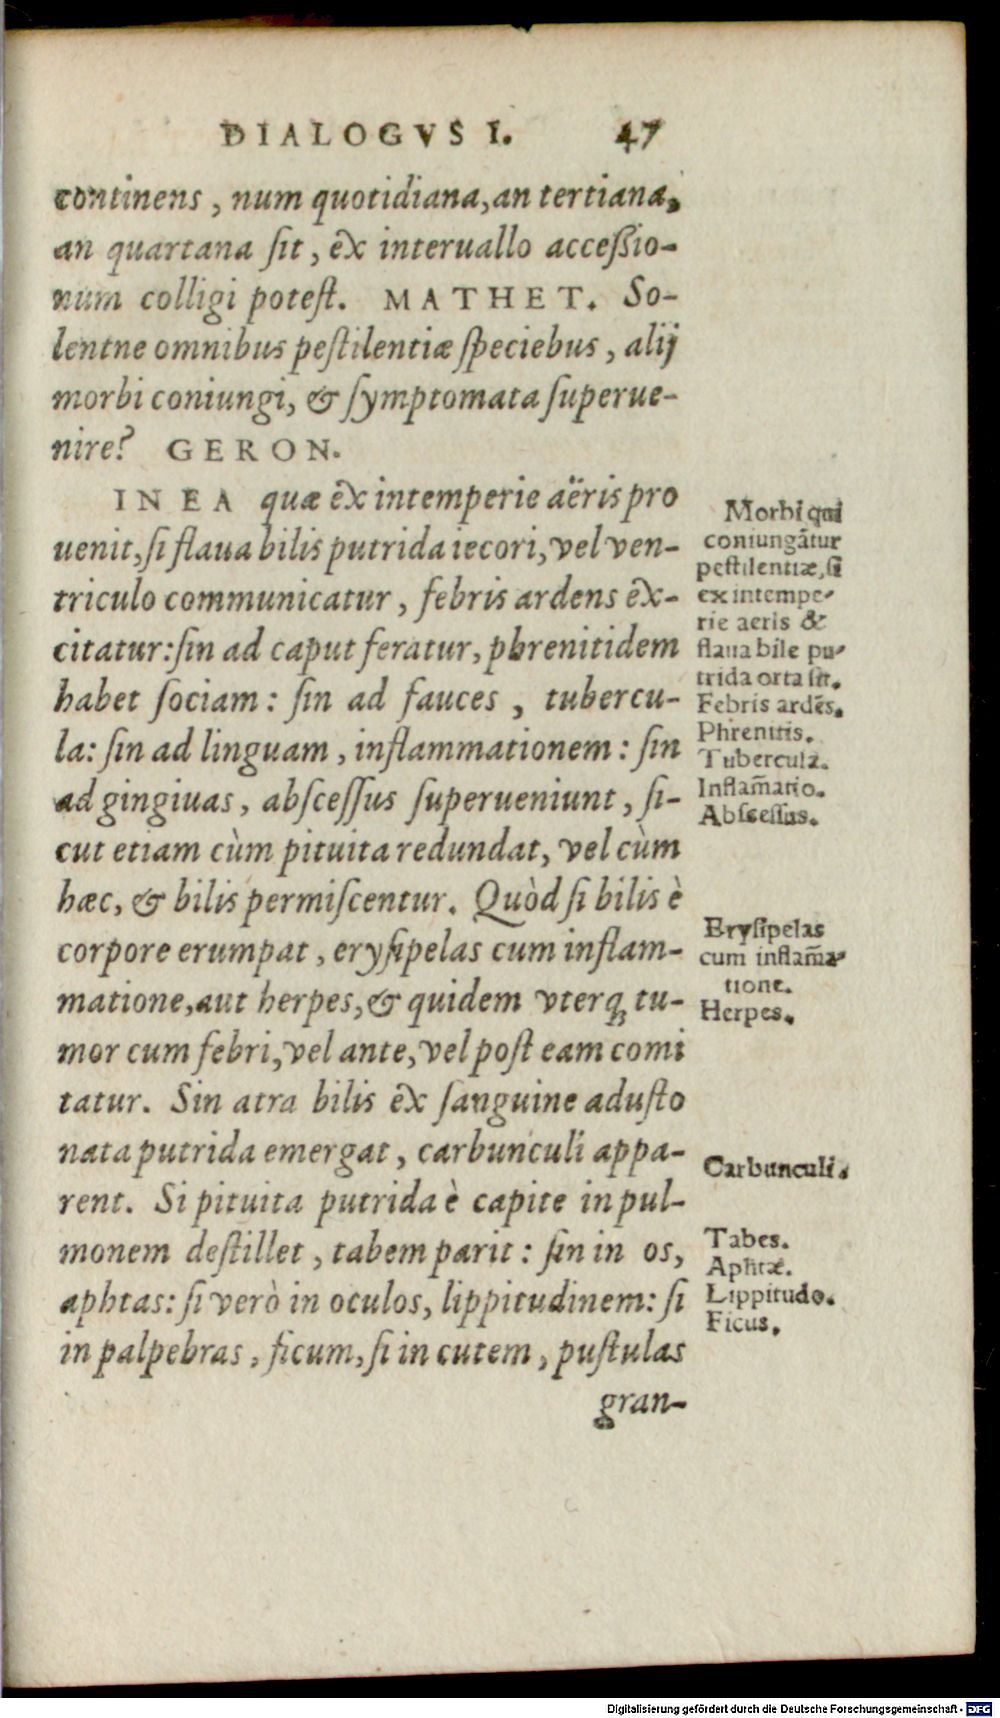 DIALOGVS I. 47
continens, num quotidiana, an tertiana,
an quartana sit, ex interuallo accessio-
num colligi potest. MATHET. So-
lentne omnibus pestilentiæ speciebus, alij
morbi coniungi, & symptomata superue-
nire? GERON.
IN EA quæ ex intemperie aëris pro
uenit, si flaua bilis putrida iecori, vel ven-
triculo communicatur, febris ardens ex-
citatur: sin ad caput feratur, phrenitidem
habet sociam: sin ad fauces, tubercu-
la: sin ad linguam, inflammationem: sin
ad gingiuas, abscessus superueniunt, si-
cut etiam cùm pituita redundat, vel cùm
hæc, & bilis permiscentur. Quòd si bilis è
corpore erumpat, erysipelas cum inflam-
matione, aut herpes, & quidem vterq; tu-
mor cum febri, vel ante, vel post eam comi
tatur. Sin atra bilis ex sanguine adusto
nata putrida emergat, carbunculi appa-
rent. Si pituita putrida è capite in pul-
monem destillet, tabem parit: sin in os,
aphtas: si verò in oculos, lippitudinem: si
in palpebras, ficum, si in cutem, pustulas
gran-
Morbi qui
coniungãtur
pestilentiæ, si
ex intempe-
rie aeris &
flaua bile pu-
trida orta sit.
Febris ardẽs.
Phrenitis.
Tubercula.
Inflam̃atio.
Abscessus.
Erysipelas
cum inflam̃a-
tione.
Herpes.
Carbunculi.
Tabes.
Aphtæ.
Lippitudo.
Ficus.
Digitalisierung gefördert durch die Deutsche Forschungsgemeinschaft - DFG